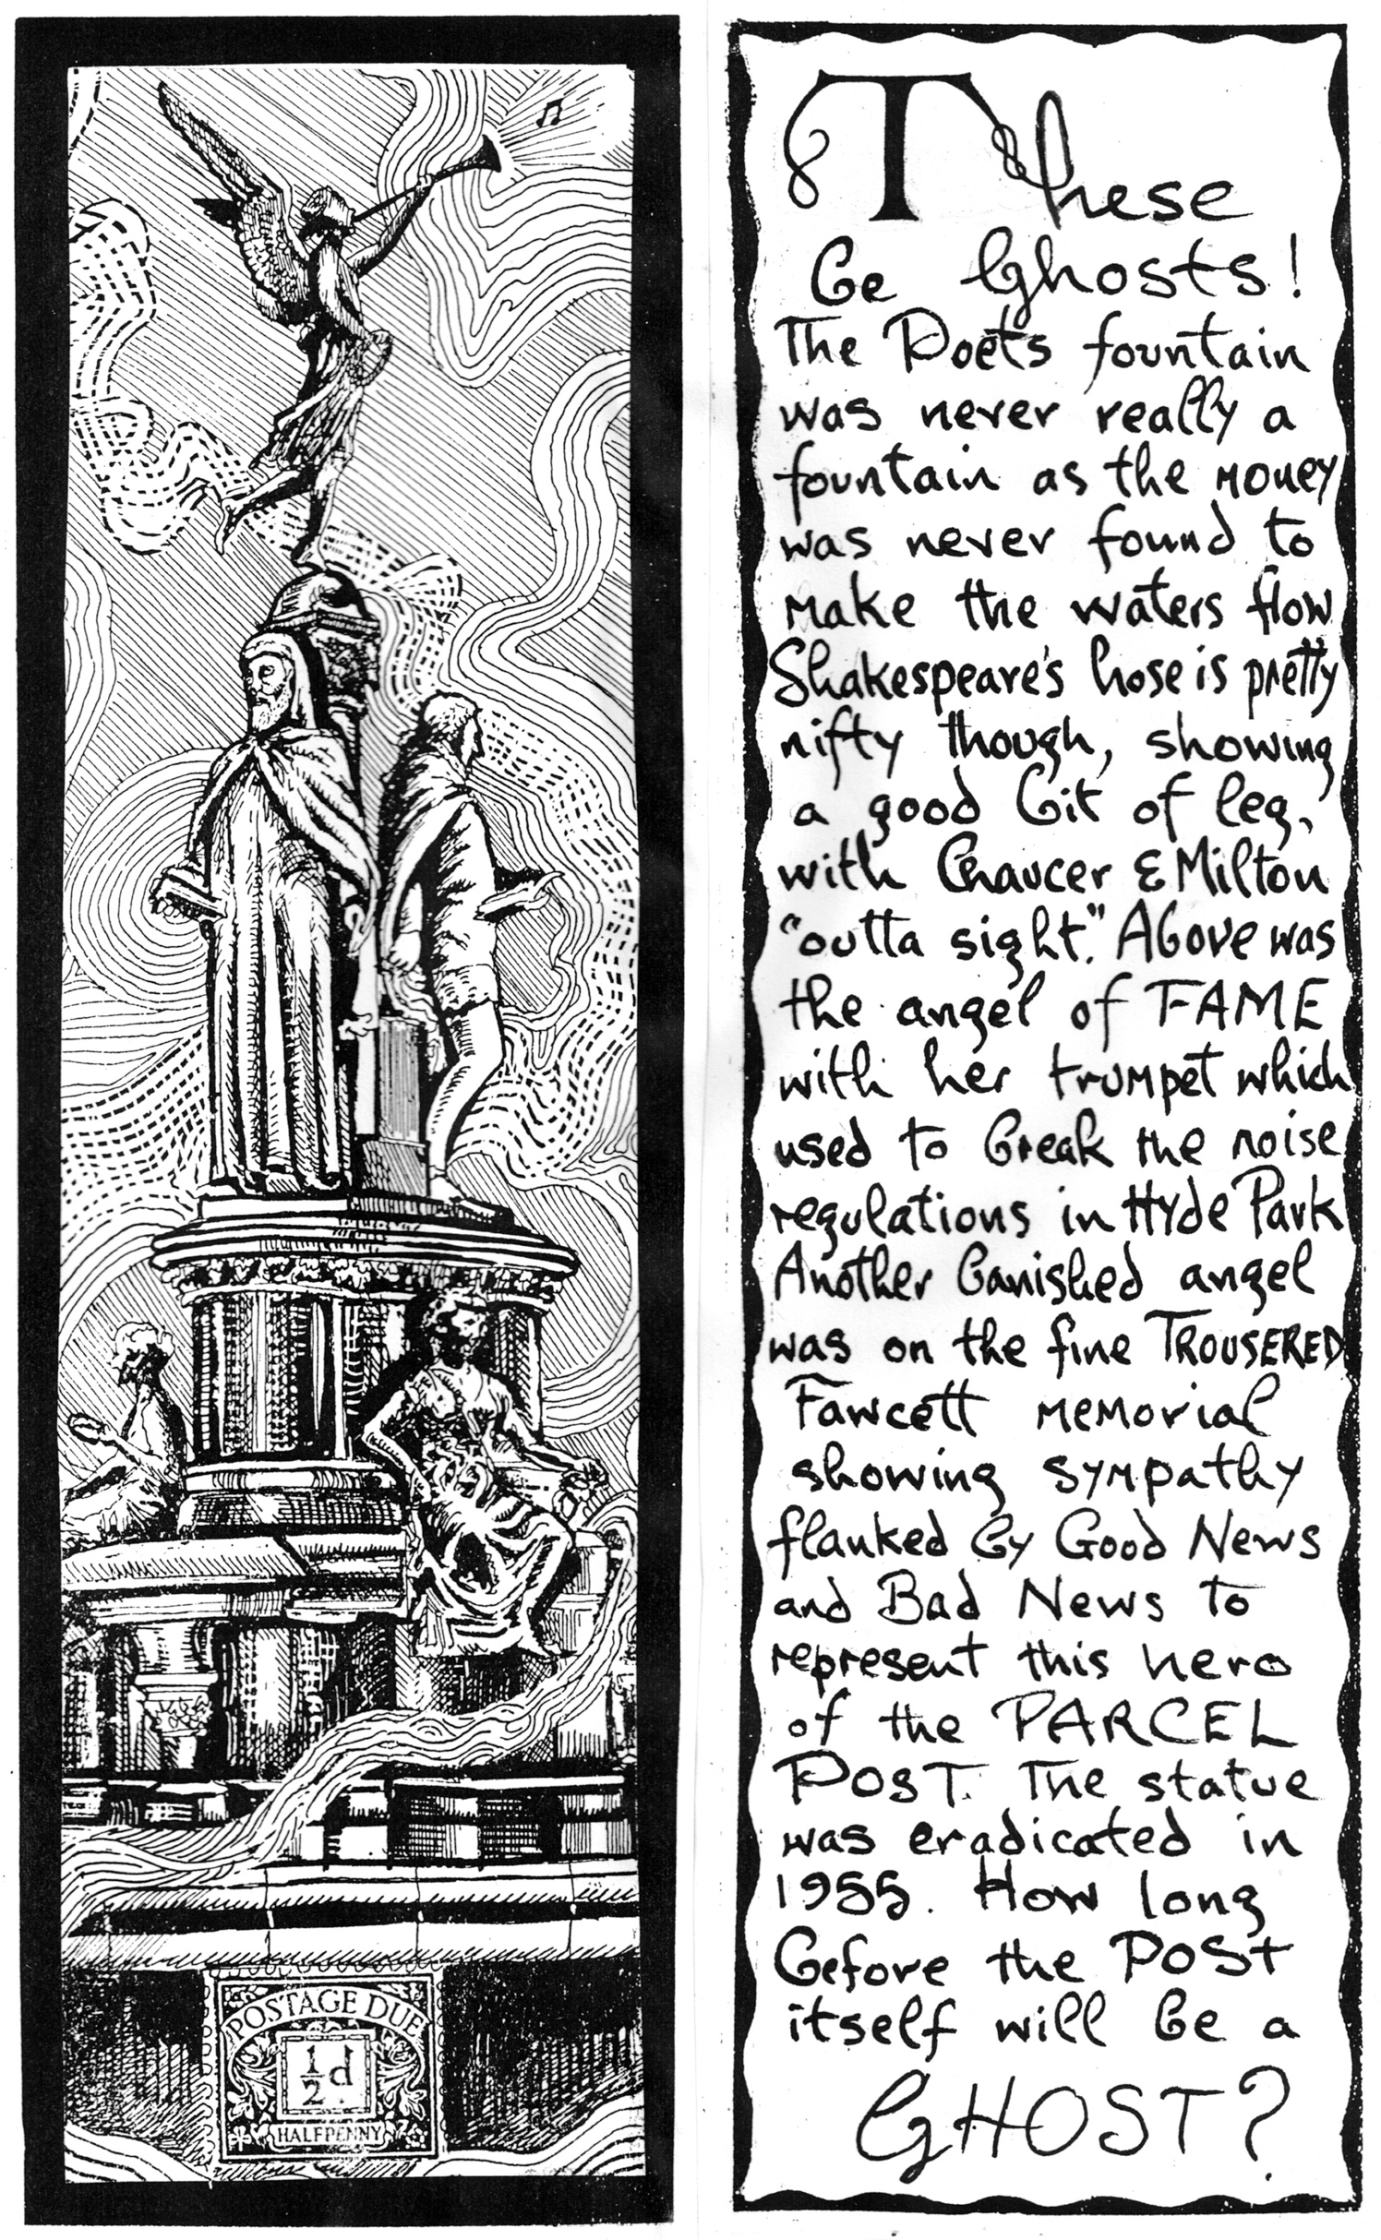 POSTAGE DUE
½d
HALFPENNY
These
be Ghosts!
The Poets fountain
was never really a
fountain as the money
was never found to
make the waters flow
Shakespeare's hose is pretty
nifty though, showing
a good bit of leg,
with Chaucer & Milton
"outta sight." Above was
the angel of FAME
with her trumpet which
used to break the noise
regulations in Hyde Park
Another banished angel
was on the fine TROUSERED
Fawcett memorial
showing sympathy
flanked by Good News
and Bad News to
represent this hero
of the PARCEL
POST. The statue
was eradicated in
1955. How long
before the POST
itself will be a
GHOST?